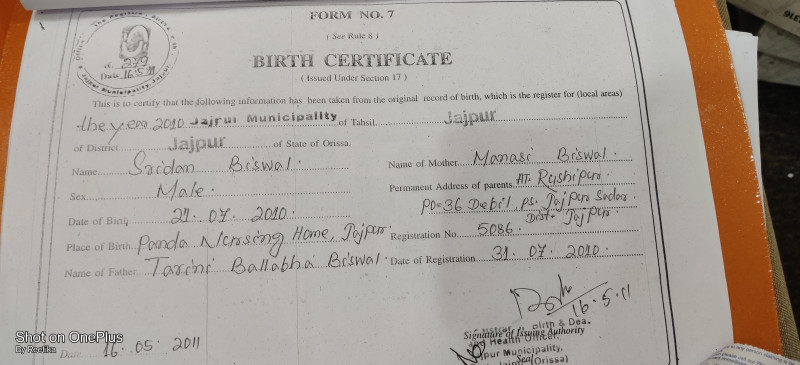 FORM NO. 7
( See Rule 8 )
BIRTH CERTIFICATE
( Issued Under Section 17 )
279
Date 16.5.11
Jajpur Municipality, Jajpur
This is to certify that the following information has been taken from the original record of birth, which is the register for (local areas)
the year 2010 Jajpur Municipality of Tahsil Jajpur
of District Jajpur of State of Orissa.
Name Sridan Biswal.
Name of Mother Manasi Biswal.
Sex Male.
Permanent Address of parents At- Rushipur
PO-36 Debil, PS. Jajpur Sadar
Dist- Jajpur
Date of Birth 21. 07. 2010.
Place of Birth Panda Nursing Home, Jajpur
Registration No. 5086.
Name of Father Tarini Ballabha Biswal.
Date of Registration 31. 07. 2010.
16.5.11
Signature of Issuing Authority
Birth & Dea.
Health Officer,
Jpur Municipality,
Seal
(Orissa)
Date 16. 05. 2011
Shot on OnePlus
By Reetika